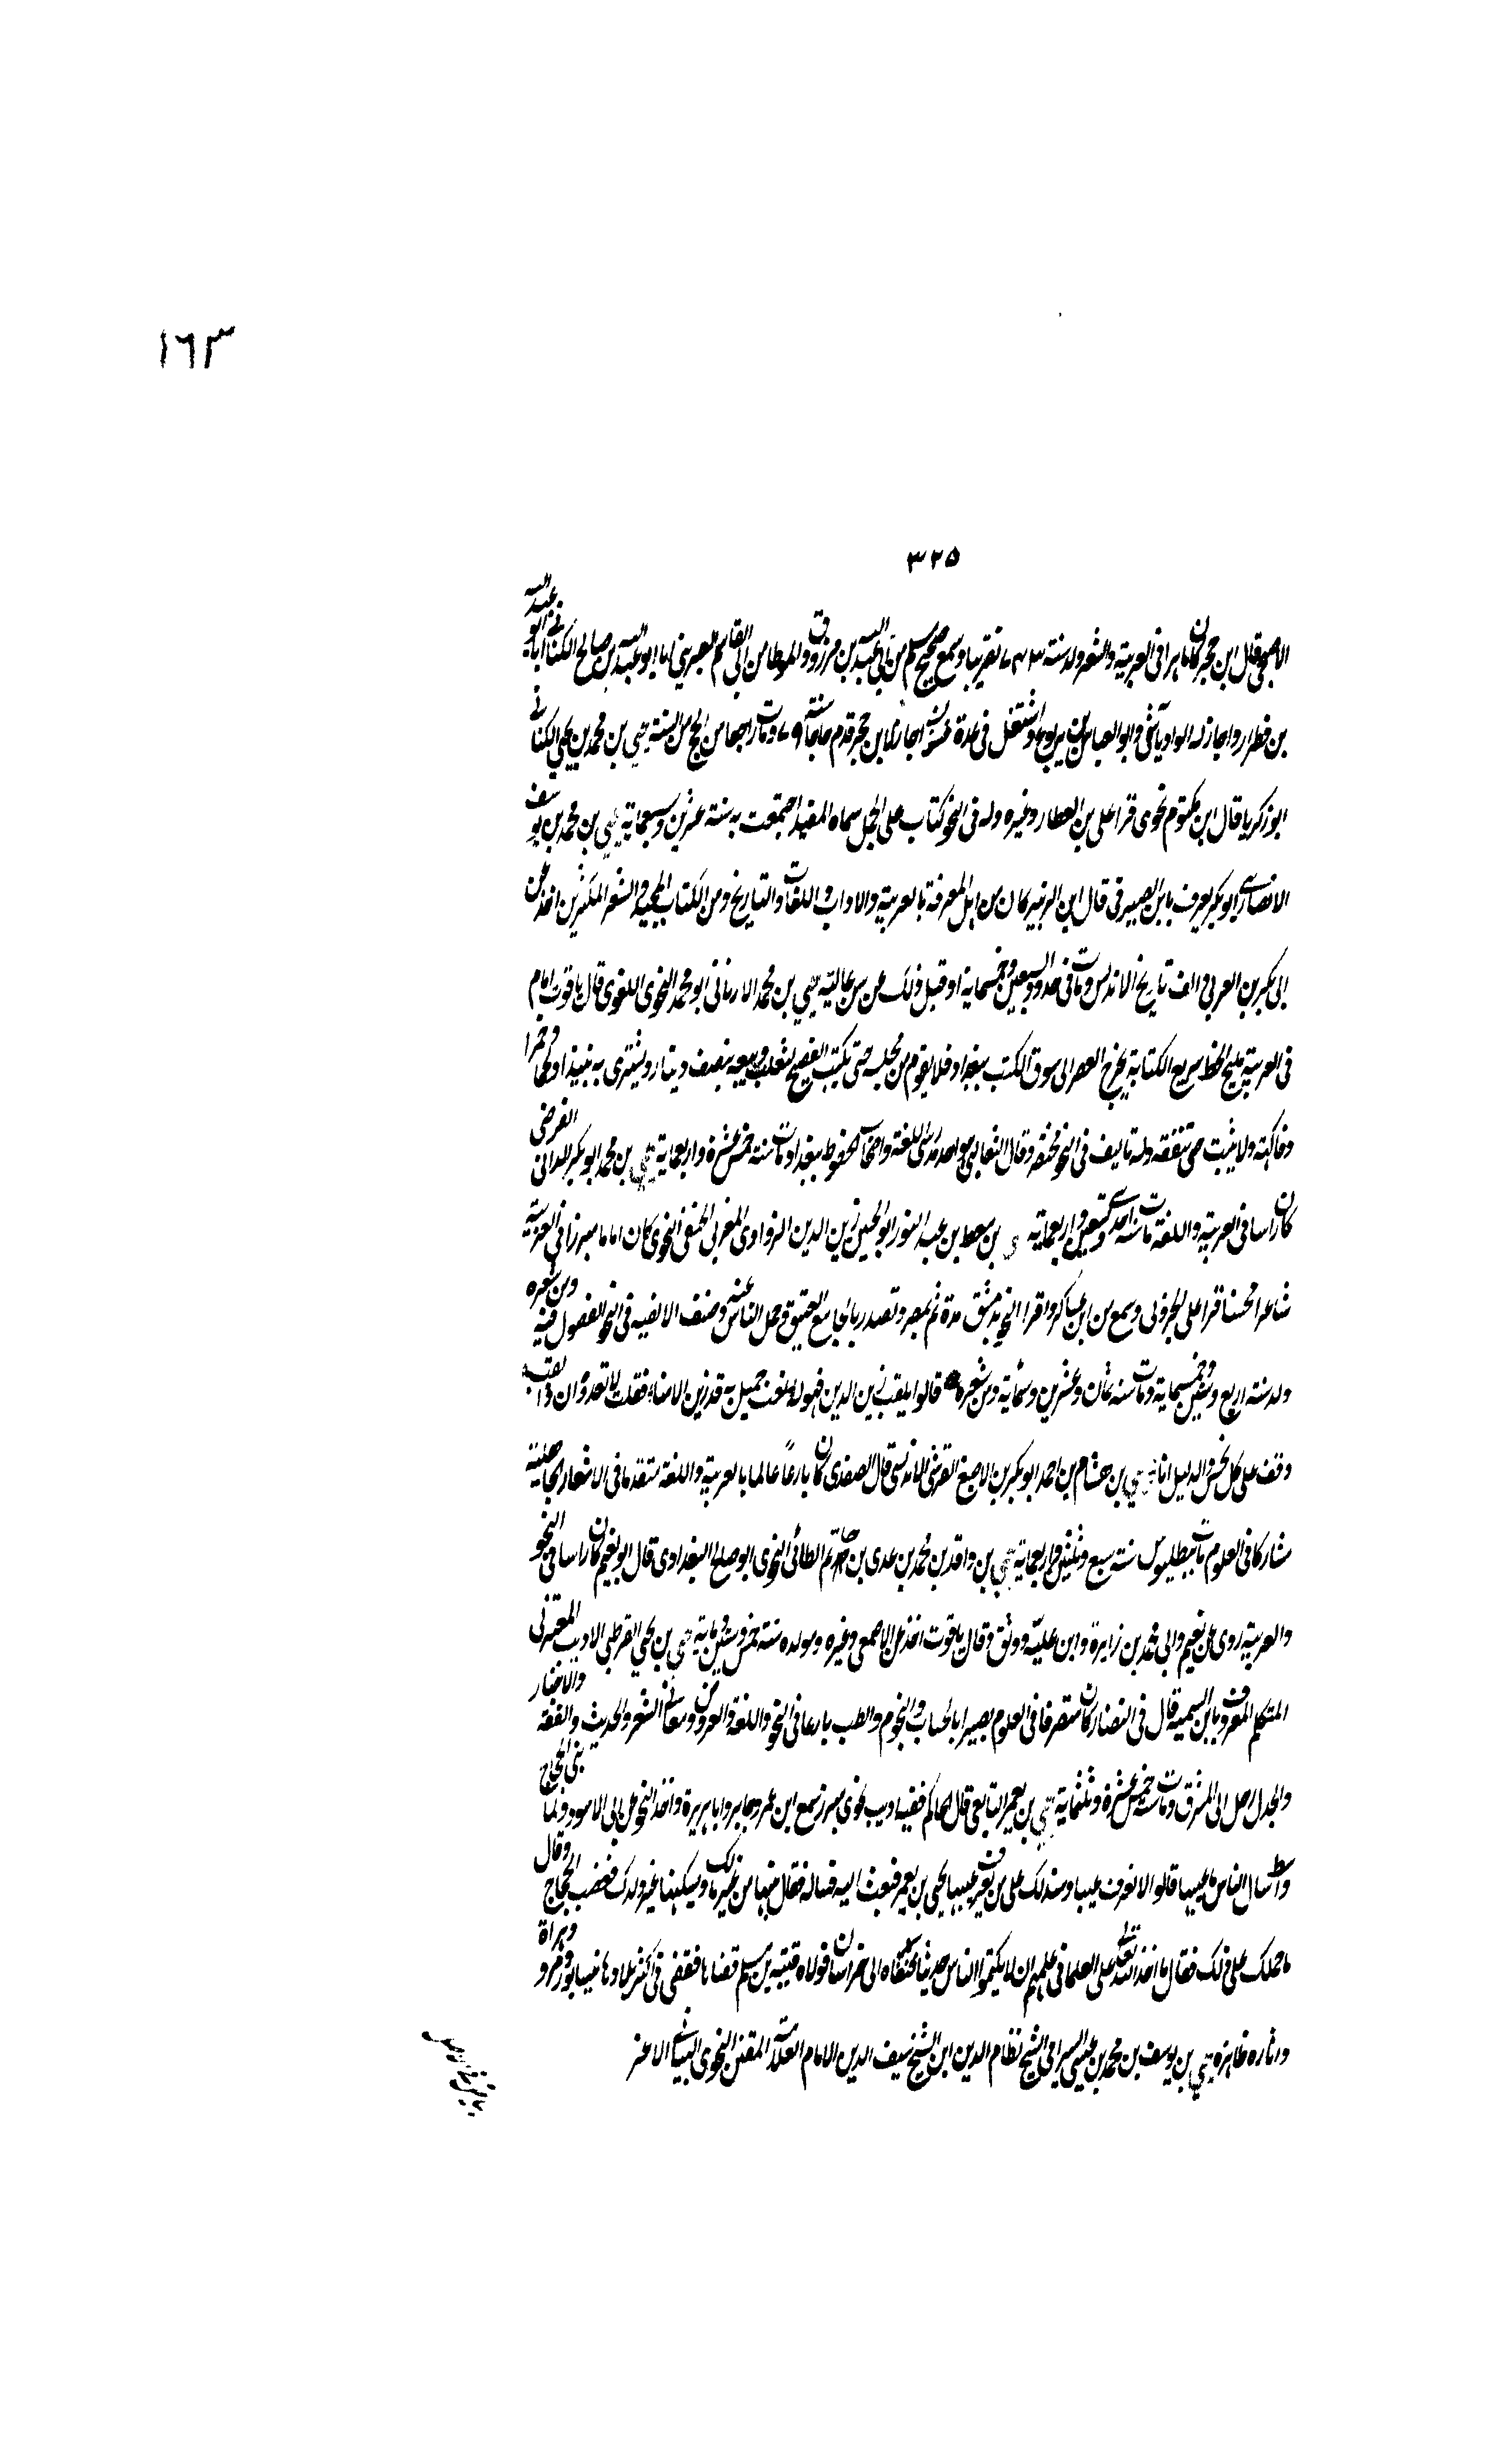 ١٦٣
٣٢٥
الاصبحي قال ابن حجر كان ماهرا في العربية والشعر ولد سنة ٧٤٣ تقريبا وسمع صحيح مسلم من ابي عبد الله بن مرزوق والموطا من ابي القاسم الغبريني انا ابو عبد الله بن صالح الكناني انا ابو عبد الله
بن قطرار واجاز له الوادياشي وابو العباس بن يربوع واشتغل في عدة فنون اجاز لابن حجر قدم حاجا سنة ٧٩ ومات راجعا من الحج من السنة يحيي بن محمد بن يحيي الكناني
ابو زكريا قال ابن مكتوم نحوي قرا على بن العطار وغيره وله في النحو كتاب على الجمل سماه المفيد اجتمعت به سنة عشرين وسبعماية يحيي بن محمد بن يوسف
الانصاري ابو بكر يعرف بابن الصيرفي قال ابن الزبير كان من اهل المعرفة بالعربية والاداب واللغات والتاريخ ومن الكتاب المجيدين والشعر المكثرين اخذ عن
ابي بكر بن العربي والف تاريخ الاندلس ومات في حدود السبعين وخمسماية او قبل ذلك عن سن عالية يحيي بن محمد الارزاني ابو محمد النحوي اللغوي قال ياقوت امام
في العربية مليح الخط سريع الكتابة يخرج العصر الى سوق الكتب ببغداد فلا يقوم من مجلسه حتى يكتب الفصيح لثعلب ويبيعه بنصف دينار ويشتري به نبيذا ولحما وخمرا
وفاكهة ولا يبيت حتى ينفقه وله تاليف في النحو مختصر وقال الثعالبي هو احد اللغة واصحاب الخطوط ببغداد مات سنة خمس عشرة واربعماية يحيي بن محمد ابو بكر الداني الفرضي
كان راسا في العربية واللغة مات سنة احدى وتسعين واربعماية بن معط بن عبد النور ابو الحسين زين الدين الزواوي المغربي الحنفي النحوي كان اماما مبرزا في العربية
شاعرا محسنا قرا على الجزولي وسمع من ابن عساكر واقرا النحو بدمشق مدة ثم بمصر وتصدر بالجامع العتيق وحمل الناس عنه وصنف الالفيه في النحو الفصول فيه ومن شعره
ولد سنة اربع وستين وخمسماية ومات سنة ثمان وعشرين وستماية ومن شعره قالوا يلقب زين الدين فهو له نعت جميل به قد زين الامناء فقلت لا تعدوه ان ذا لقب
وقف على كل نحس والدليل انا يحيي بن هشام بن احمد ابو بكر بن الاصبغ القرشي الاندلسي قال الصفدي كان بارعا عالما بالعربية واللغة متقدما في الاشعار الجاهلية
مشاركا في العلوم مات ببطليوس سنة سبع وثلثين واربعماية يحيي بن واقد بن محمد بن عدي بن حاتم الطائي النحوي ابو صالح البغدادي قال ابو نعيم كان راسا في النحو
والعربية روى عن نعيم وابي محمد بن زايرة وابن علية ووثق وقال ياقوت اخذ عن الاصمعي وغيره ومولده سنة خمس وستين وماية يحيي بن يحيي القرطبي الاديب المعتزلي
المتكلم المعروف بابن السمينة قال في النضار كان متصرفا في العلوم بصيرا بالحساب والنجوم والطب بارعا في النحو واللغة والعروض ومعاني الشعر والحديث والفقه والاخبار
والجدل رحل الى المشرق ومات سنة خمس عشرة وثلثماية يحيي بن يعمر التابعي قال الحاكم فقيه اديب نحوي مبرز سمع ابن عمر وجابر وابا هريرة واخذ النحو عن ابي الاسود ولما بنى الحجاج
واسط سال الناس ما عيبها قالوا لا نعرف عيبا وسندلك على من يعرف عيبها يحيي بن يعمر فبعث اليه فساله فقال بنيتها من غير مالك وسيسكنها غير ولدك فغضب الحجاج وقال
ما حملك على ذلك فقال ما اخذ الله تعالى على العلما في علمهم ان لا يكتموا الناس حديثا فنفاه الى خراسان فولاه قتيبة بن مسلم قضاها فقضى في اكثر بلادها نيسابور ومرو وهراة
واثاره ظاهرة يحيي بن يوسف بن محمد بن عيسى السيرامي الشيخ نظام الدين ابن الشيخ سيف الدين الامام العلامة المفنن النحوي البياني الاعز